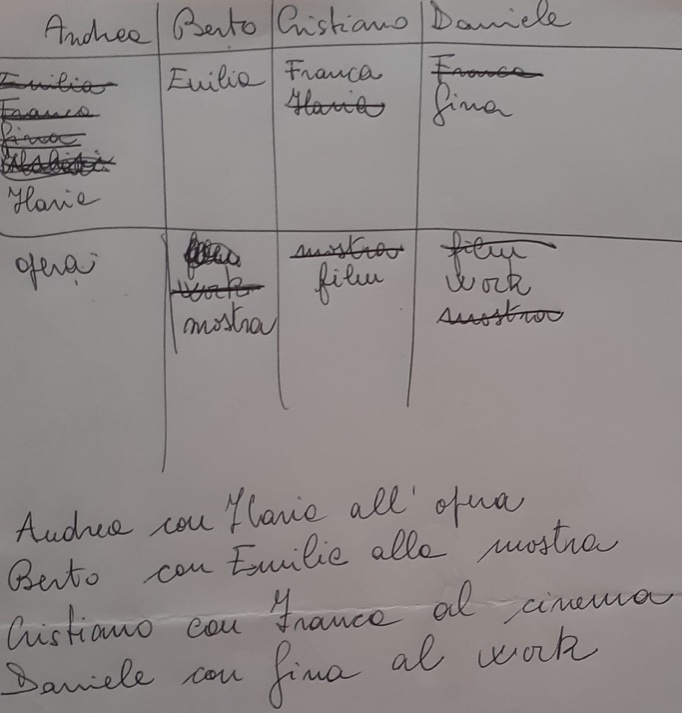 Andrea Berto Cristiano Daniele
Emilia Emilia Franca Franca
Franca Ilaria Gina
Gina
Ilaria
opera mostra film
work film work
mostra mostra
Andrea con Ilaria all'opera
Berto con Emilia alla mostra
Cristiano con Franca al cinema
Daniele con Gina al work